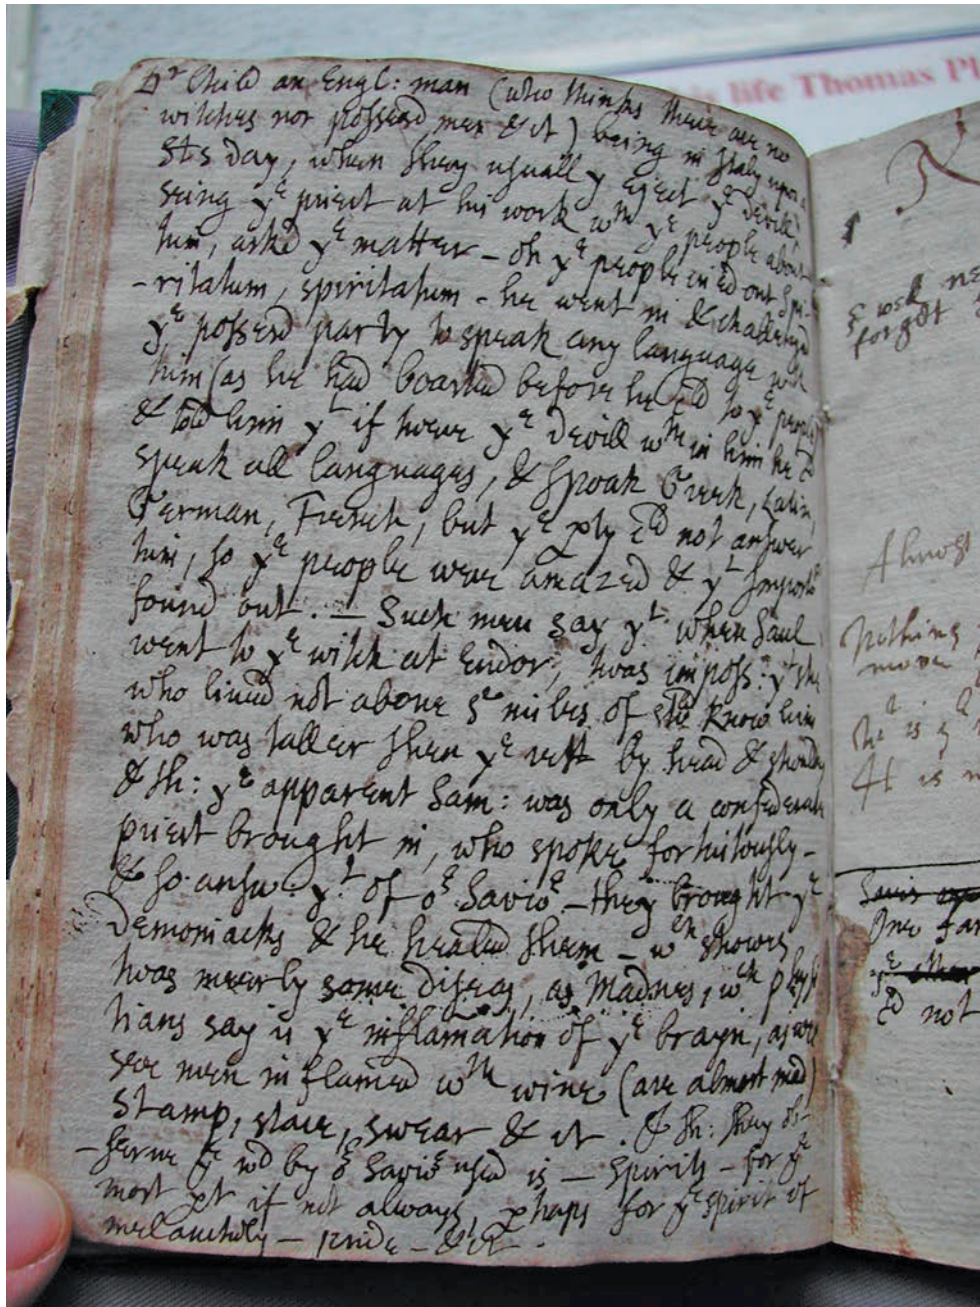 his life Thomas Pl
Dr Child an Engl: man (who thinks there are no
witches nor possesd men &ct) being in Italy upon a
Sts day, when they usually eject ye devill,
seing ye priest at his work wth ye people about
him, askd ye matter - oh ye people in ed out Spi-
-ritatum, spiritatum - he went in & challenged
ye possesd party to speak any language with
him (as he had boasted before he to ye people)
& told him yt if twere ye Devill wthin him he cd
speak all languages, & spoak Greek, Latin,
German, French, but ye pty cd not answer
him, so ye people were amazed & yt
found out. - Such men say yt when Saul
went to ye witch at Endor, twas imposs: yt she
who lived not above 5 miles of shd know him
who was taller then ye rest by head & shoulder
& th: ye apparent Sam: was only a confederate
priest brought in, who spoke fortuitously -
& so answ: yt of or Savior - they brought ye
Demoniacks & he healed them - wch showes
twas meerly some diseas, as Madnes, wch phyſi
tians say is ye inflamation of ye brayn, as we
see men inflamed wth wine (are almost mad)
stamp, stare, swear &ct. & th: they ob-
-serve ye wd by or Savior used is - spirits - for ye
most pt if not always, phaps for ye spirit of
melancholy - pride - &ct.
forget
Almost
Nothing
move
he is
It is
One
cd not